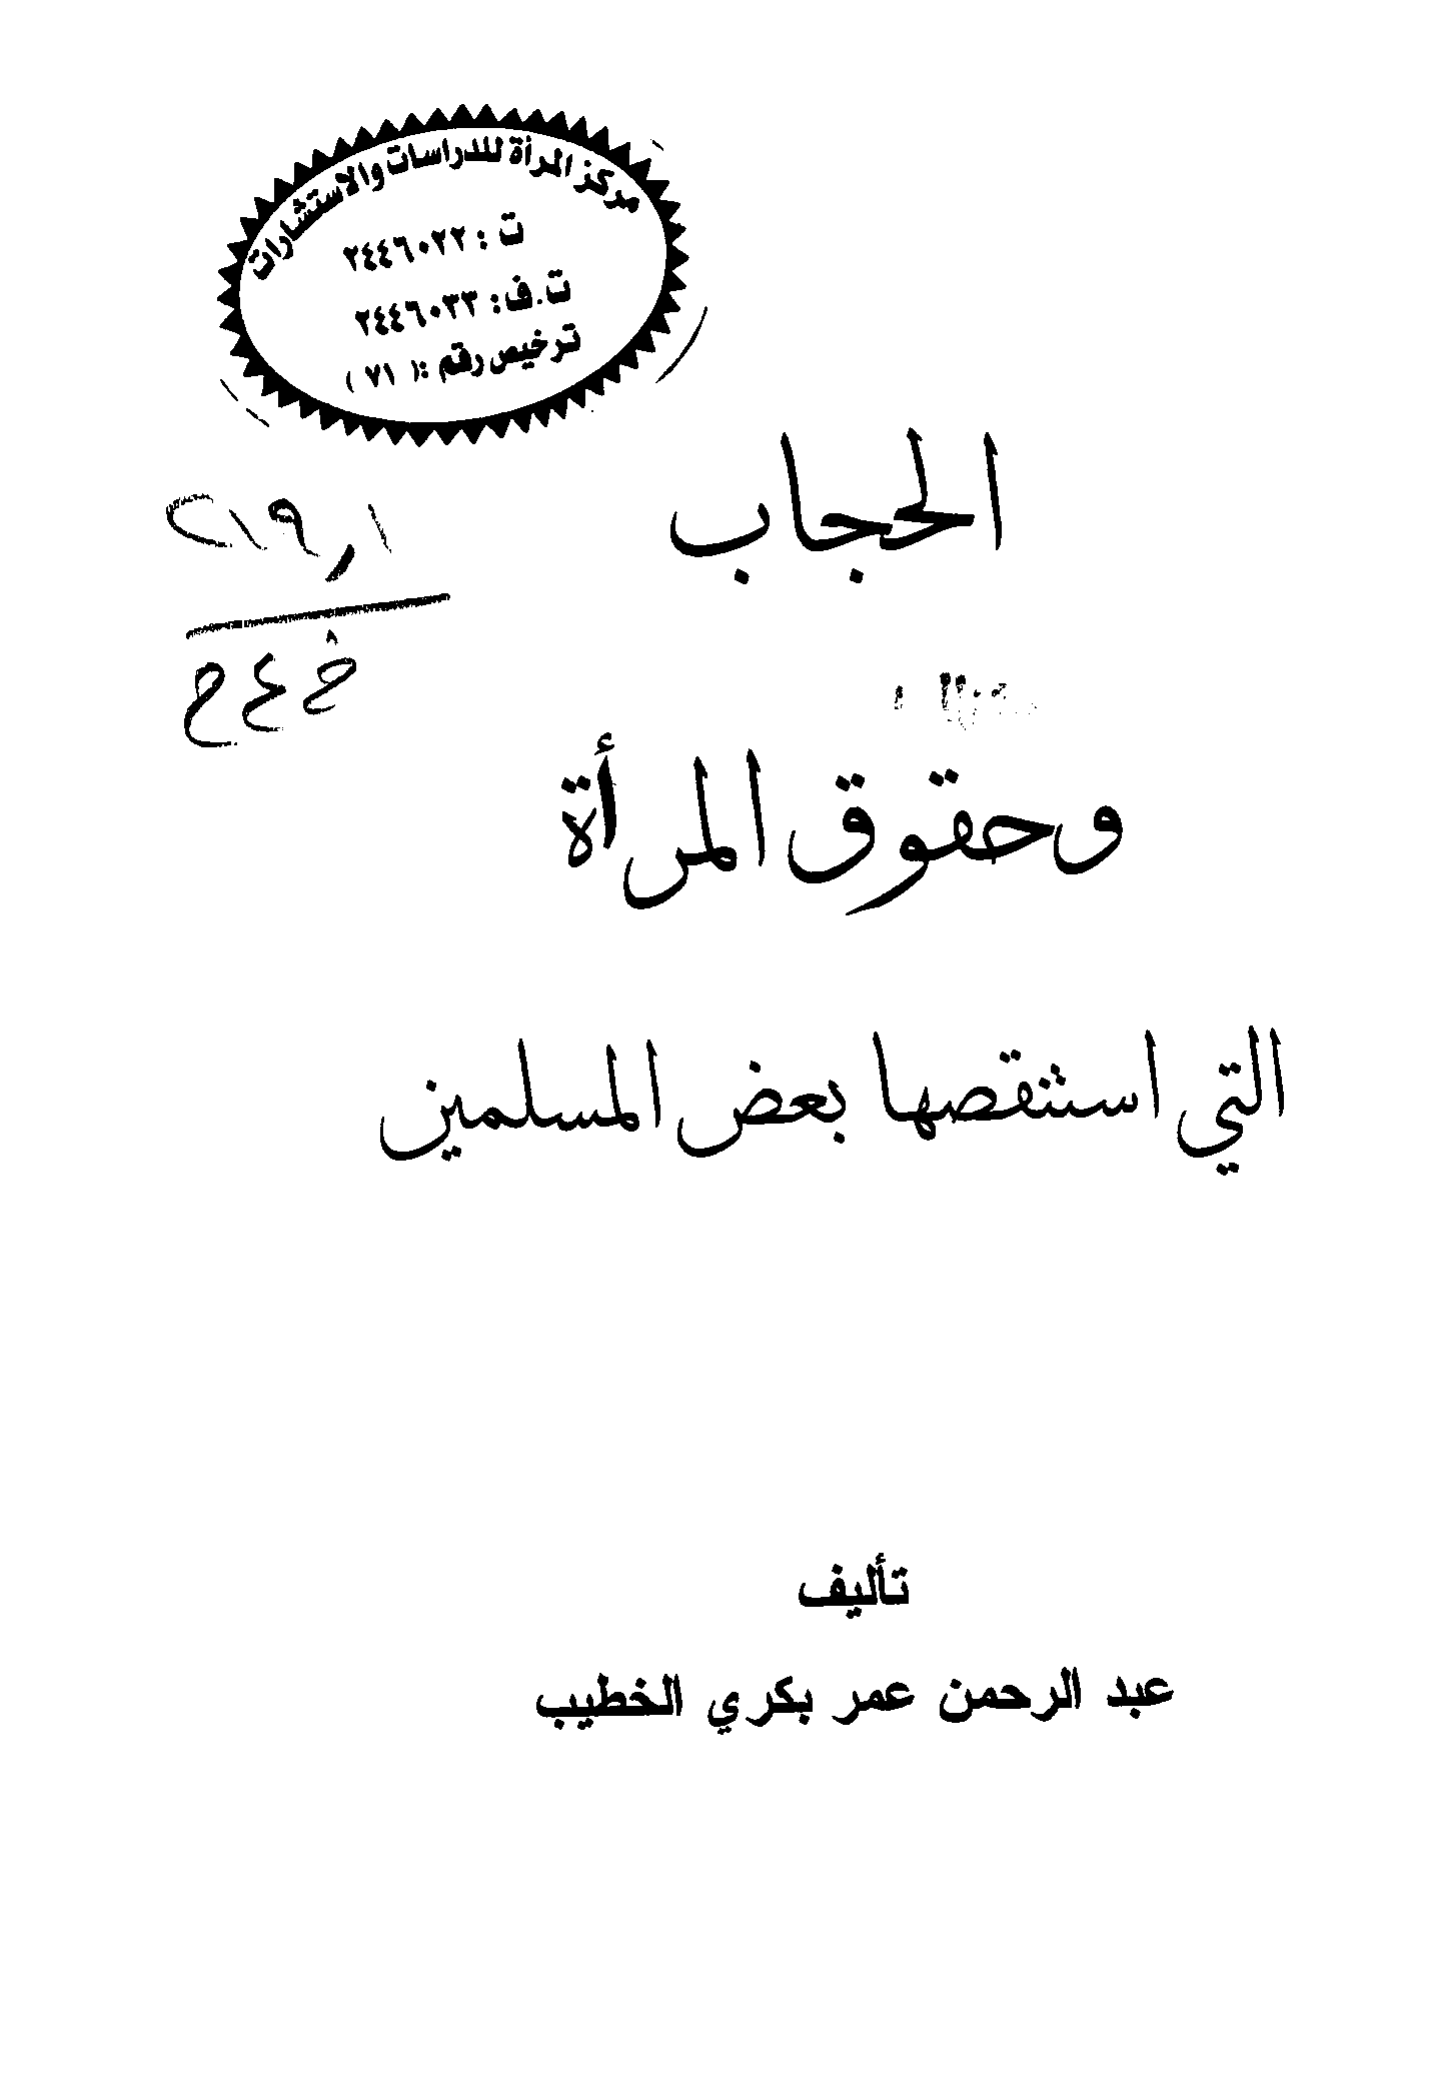 مركز المرأة للدراسات والاستشارات
ت : ٢٤٤٦٠٢٢
ت.ف: ٢٤٤٦٠٣٣
ترخيص رقم :( ٧١ )
الحجاب
وحقوق المرأة
التي استنقصها بعض المسلمين
تأليف
عبد الرحمن عمر بكري الخطيب